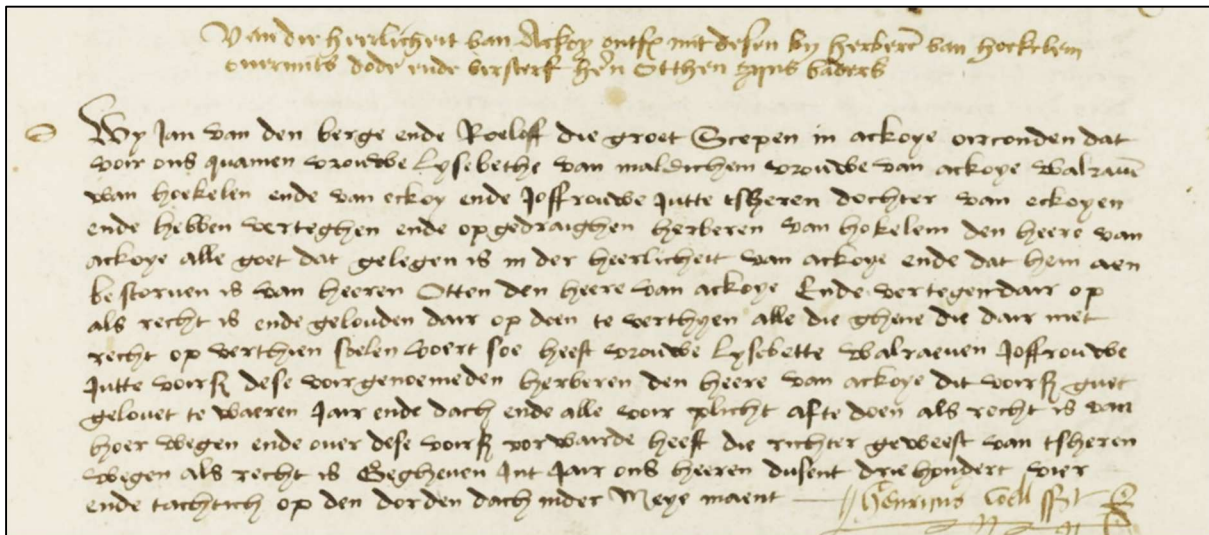 Van die heerlicheit van Ackoy ontfx mit desen by herberē van hoekelem
overmits dode ende versterf hēn Otthen zyns vaders
Wy Jan van den berge ende Roeloff die groet Scepen in ackoye oirconden dat
voir ons quamen vrouwe Lysebethe van maldichem vrouwe van ackoye walravē
van hoekelen ende van eckoy ende Joffrouwe Jutte tsheren dochter van eckoyen
ende hebben verteghen ende opgedraighen herberen van hokelem den heere van
ackoye alle goet dat gelegen is in der heerlicheit van ackoye ende dat hem aen
bestorven is van heeren Otten den heere van ackoye Ende vertegen dair op
als recht is ende gelouden dair op doen te verthyen alle die ghene die dair met
recht op verthien soelen Voert soe heeft vrouwe Lysebette walraeven Joffrouwe
Jutte voirsz dese voirgenoemeden herberen den heere van ackoye dit voirsz guet
gelovet te waeren Jair ende dach ende alle voir plicht af te doen als recht is van
hoer wegen ende over dese voirsz vorwairde heeft die richter geweest van tsheren
wegen als recht is Gegheven Int Jair ons heeren dusent driehondert vier
ende tachtich op den dorden dach inder Meye maent Henricus